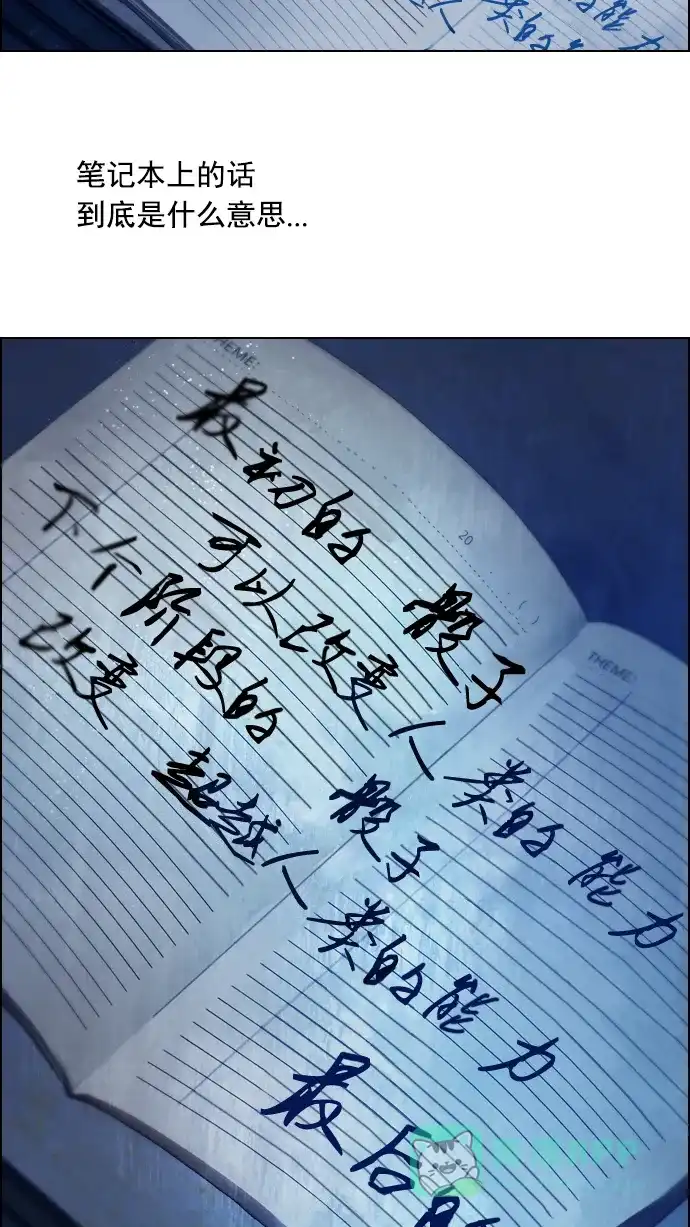 类的能力
类的
笔记本上的话
到底是什么意思...
THEME:
20
( )
最初的 骰子
可以改变人类的能力
下个阶段的 骰子
改变 超越人类的能力
THEME:
最后的